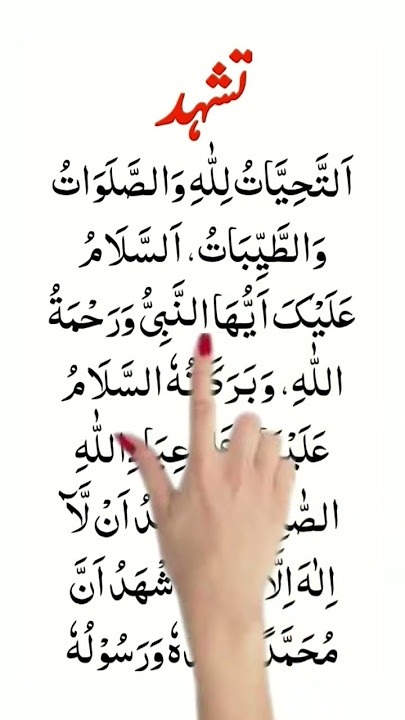 تشہد
اَلتَّحِيَّاتُ لِلّٰهِ وَالصَّلَوَاتُ
وَالطَّيِّبَاتُ، اَلسَّلَامُ
عَلَيْكَ اَيُّهَا النَّبِيُّ وَرَحْمَةُ
اللّٰهِ، وَبَرَكَاتُهٗ السَّلَامُ
اللّٰهِ
اَنْ لَّآ
اِلٰهَ اِلَّا اَشْهَدُ اَنَّ
مُحَمَّدًا وَرَسُوْلُهٗ